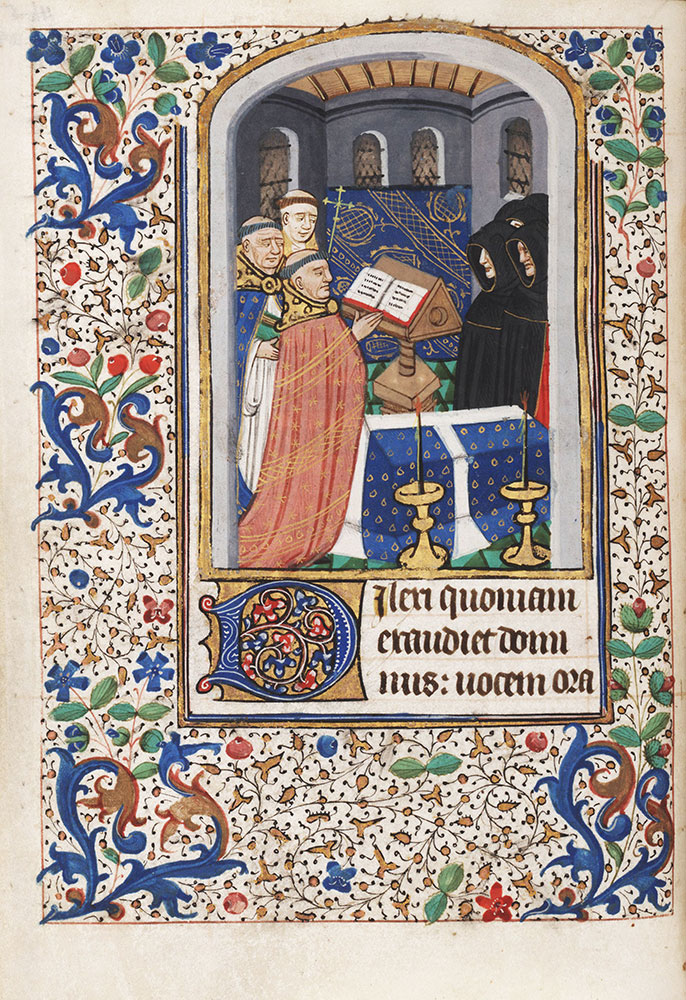 Dilexi quoniam
exaudiet domi
nus: uocem ora